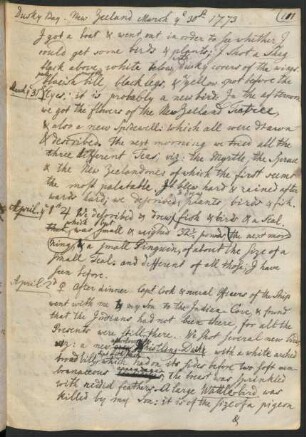 Dusky Bay. New Zeeland March ye 30th 1773 (101
I got a boat & went out in order to see whether I
could get some birds & plants; I shot a Shag
black above, white below, dusky covers of the wings
bluish bill, black legs, & Yellow spot before the
March ye 31. Eyes: it is probably a new bird. In the afternoon
we got the flowers of the New Zeeland Teatree,
& also a new which all were drawn
& described. The next morning we tried all the
three different Teas, viz: the Myrtle, the Spruce
& the New Zeelandones of which the first seemed
the most palatable. It blew hard & rained after
wards hard; we described plants, birds & fish.
April ye 1st We described & drew fish & birds & a Seal,
that was small & weighed the next mor
ning & a small Penguin, of about the size of a
small Teal, and different of all those I have
seen before.
April ye 2d After dinner Capt Cook & several officers of the Ship
went with me & my son to the Indian Cove, & found
that the Indians had not been there, for all the
Presents were still there. We shot several new birds,
viz: a new Whistling Duck with a white arched
broad bill which had on its sides before two soft mem
branaceous the breast was sprinkled
with reddish feathers. A large Wattlebird was
killed by my son: it is of the size of a pigeon
&